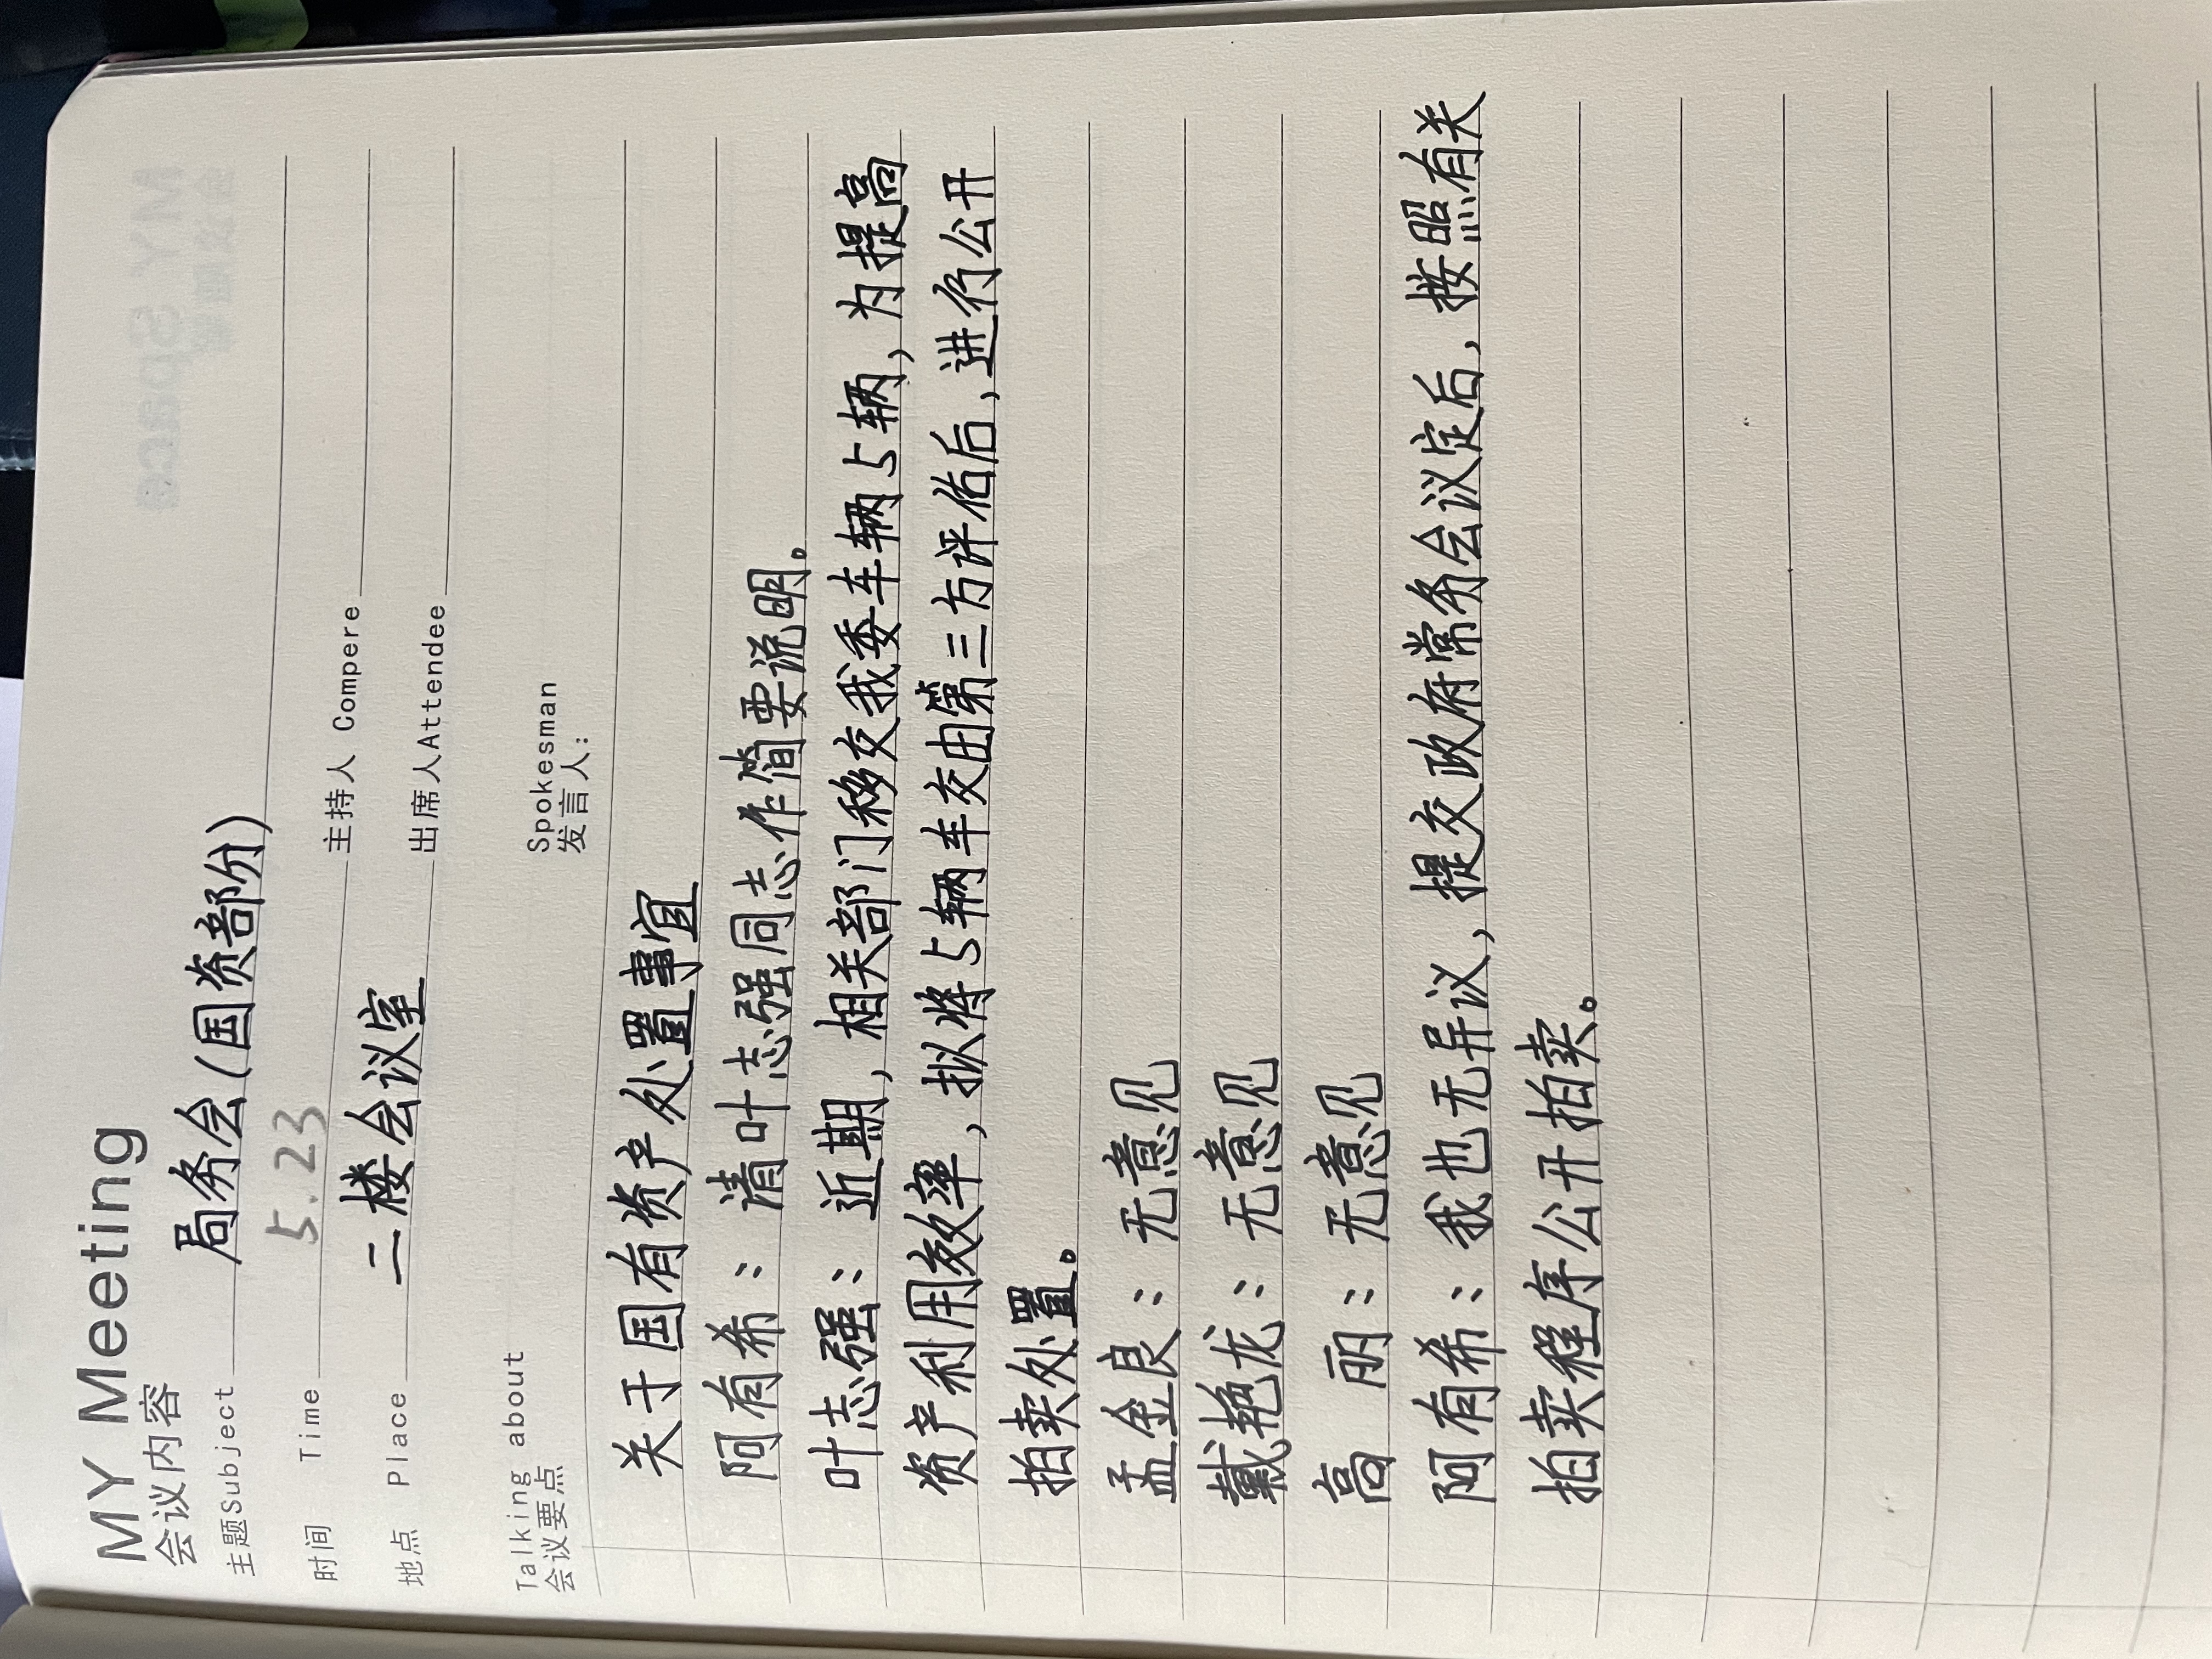 MY Meeting
会议内容
主题Subject 局务会(国资部份)
时间 Time 5.23 主持人 Compere
地点 Place 二楼会议室 出席人Attendee
Talking about Spokesman
会议要点 发言人:
关于国有资产处置事宜
阿有希:请叶志强同志作简要说明。
叶志强:近期,相关部门移交我委车辆5辆,为提高
资产利用效率,拟将5辆车交由第三方评估后,进行公开
拍卖处置。
孟金良:无意见
戴艳龙:无意见
高 丽:无意见
阿有希:我也无异议,提交政府常务会议定后,按照有关
拍卖程序公开拍卖。